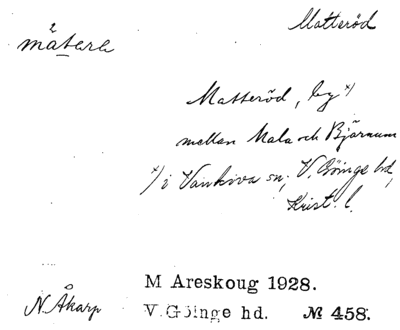 Matteröd
måtarö
Matteröd, by x)
mellan Mala och Bjärnum
x) i Vankiva sn, V. Göinge hd,
Krist. l.
M Areskoug 1928.
N. Åkarp
V. Göinge hd. № 458.